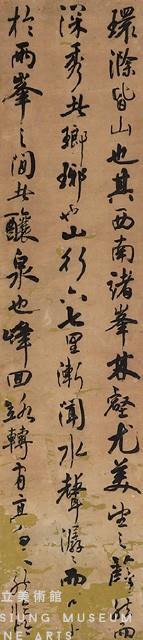 環滁皆山也其西南諸峯林壑尤美望之蔚然而
深秀者瑯琊也山行六七里漸聞水聲潺〻而
於兩峯之間者釀泉也峰回路轉有亭
立美術館
SIUNG MUSEUM
NE ARTS